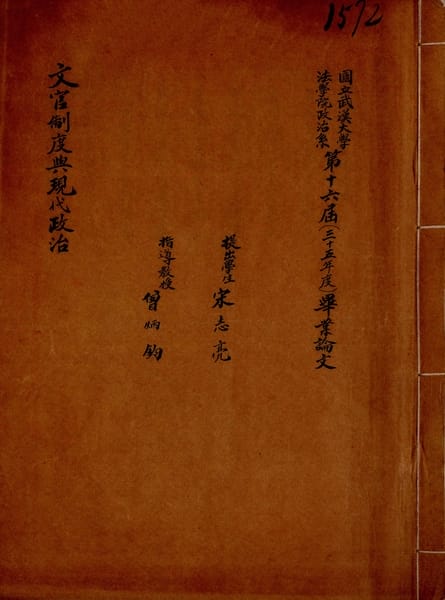 1572
國立武漢大學
法學院政治系
第十六屆(三十五年度)畢業論文
提出學生 宋志亮
指導教授 曾炳鈞
文官制度與現代政治